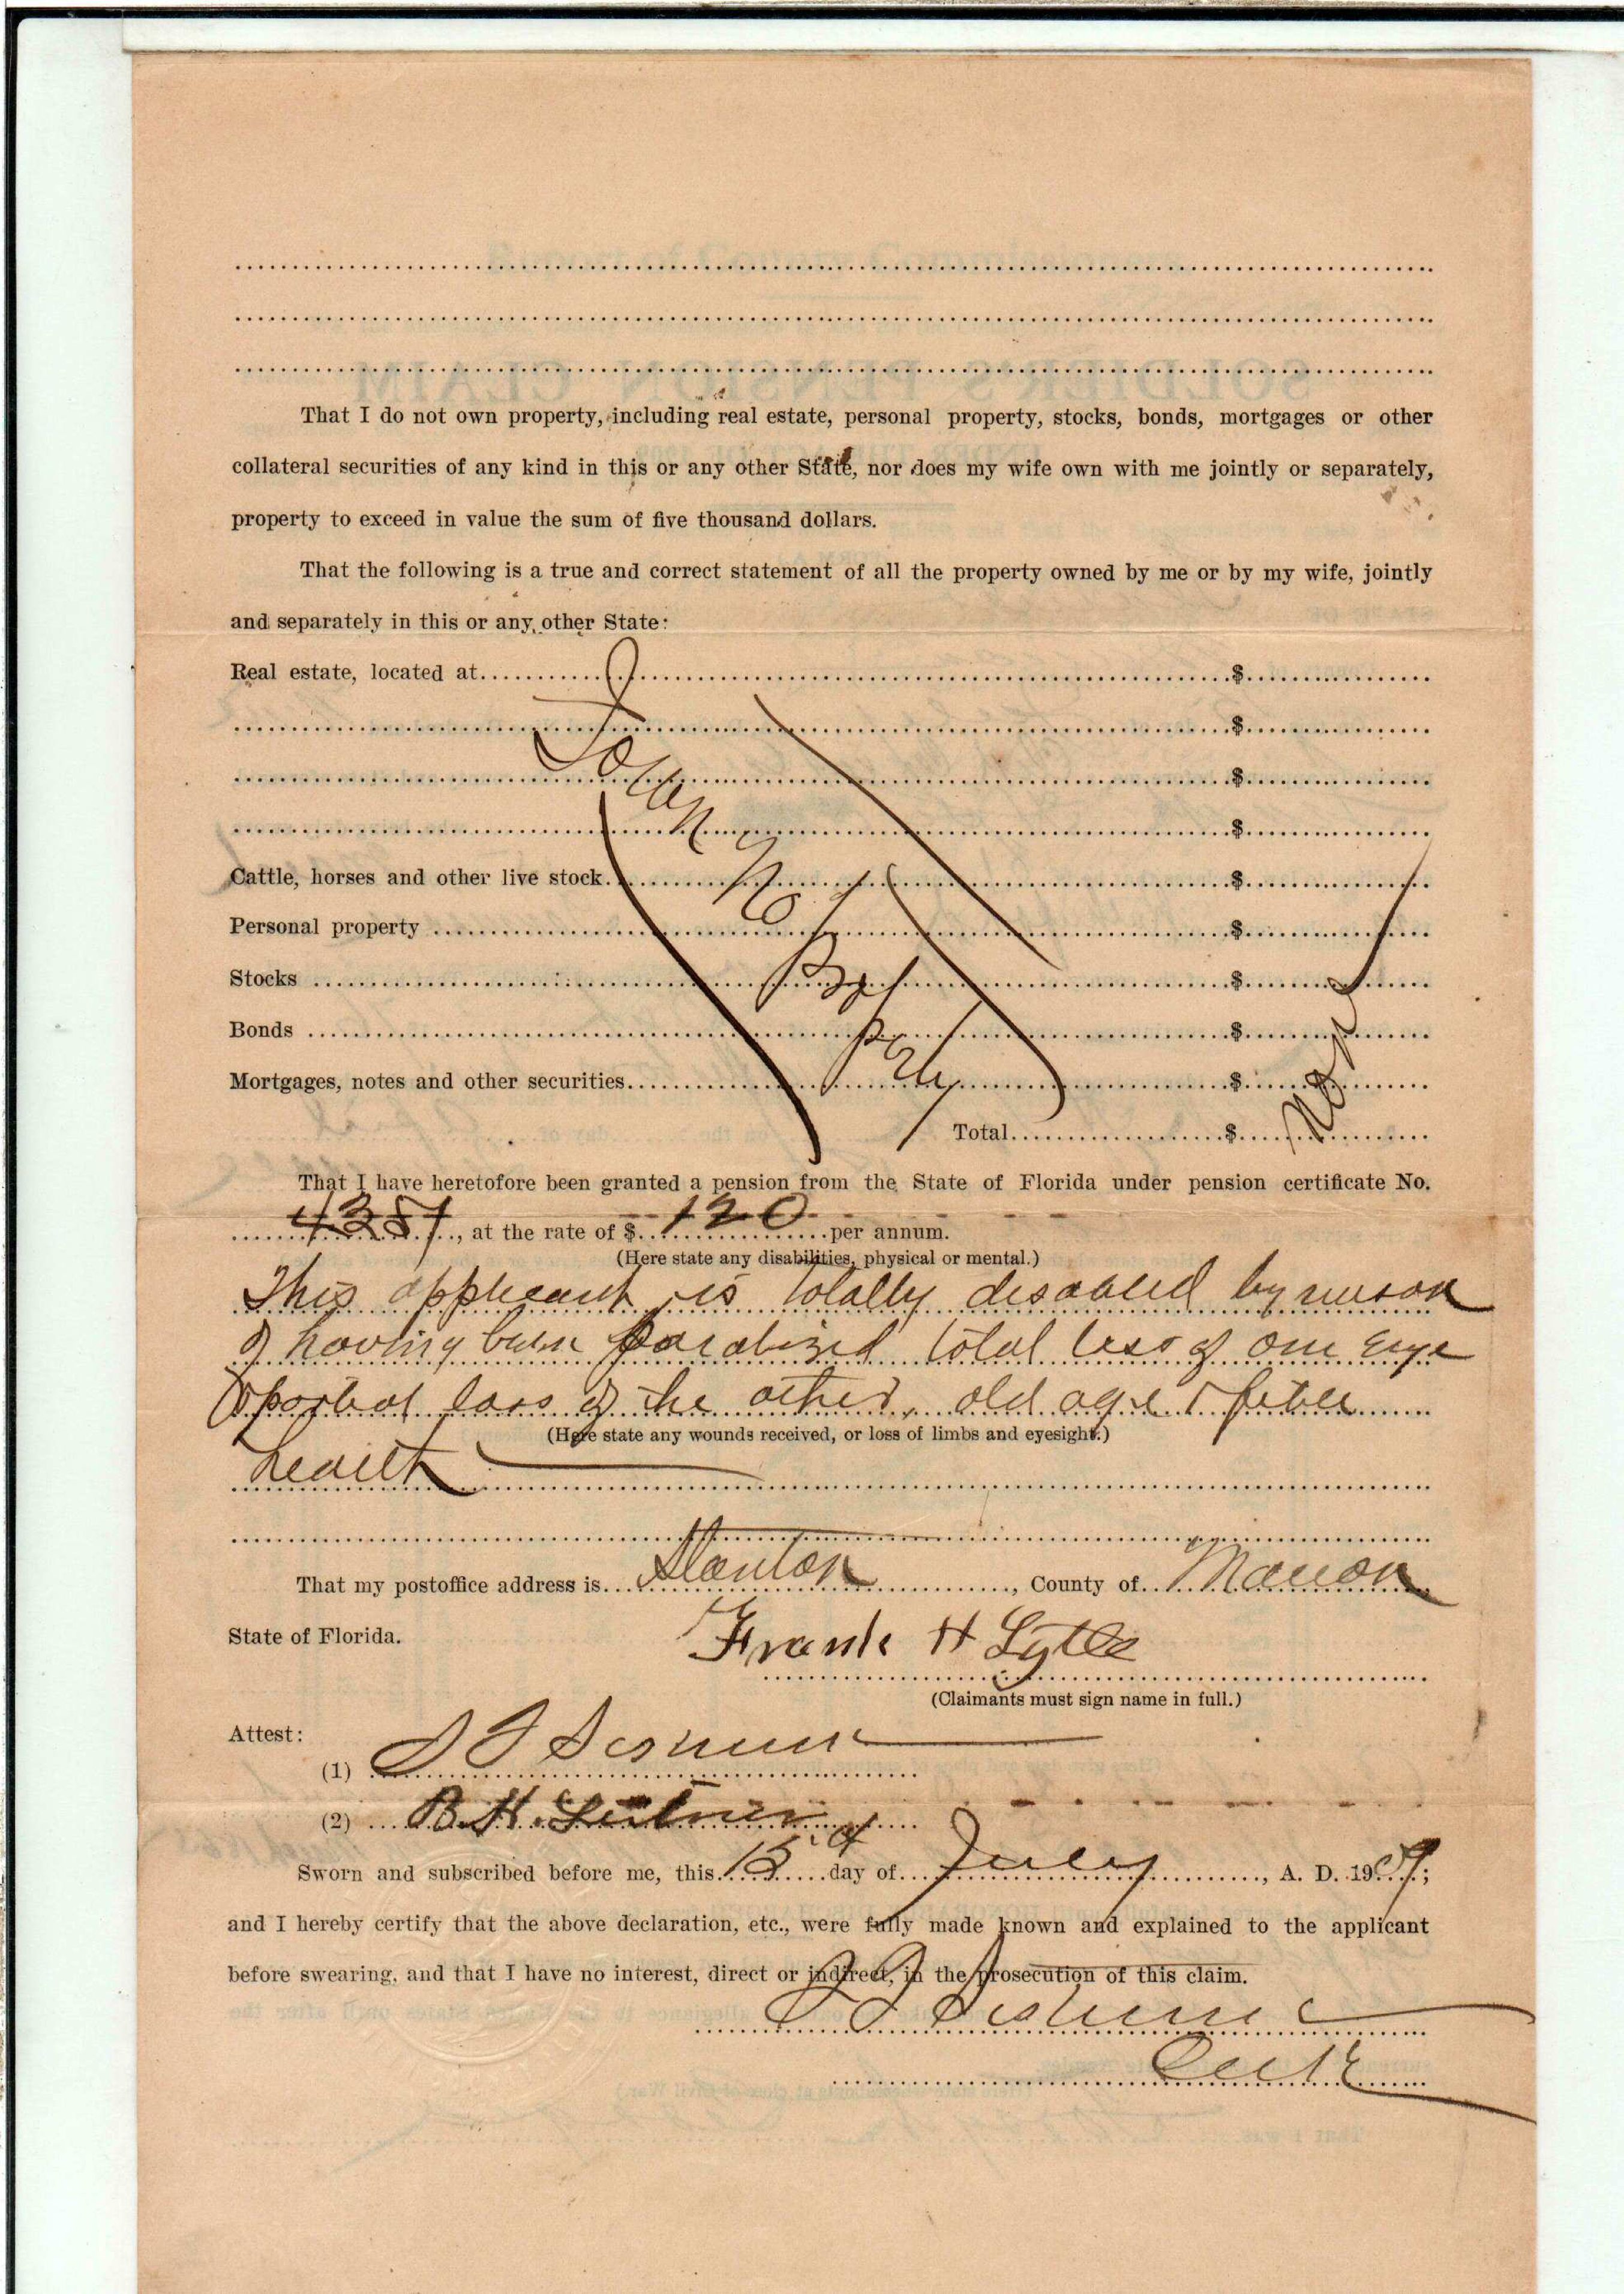 That I do not own property, including real estate, personal property, stocks, bonds, mortgages or other
collateral securities of any kind in this or any other State, nor does my wife own with me jointly or separately,
property to exceed in value the sum of five thousand dollars.
That the following is a true and correct statement of all the property owned by me or by my wife, jointly
and separately in this or any other State:
Real estate, located at $
$
$
$
Cattle, horses and other live stock. $
Personal property $
Stocks $
Bonds $
Mortgages, notes and other securities $
I own no
Total $ None
That I have heretofore been granted a pension from the State of Florida under pension certificate No.
4387, at the rate of $ 120 per annum.
(Here state any disabilities, physical or mental.)
This applicant is totally disabled by reason
of having been paralized total loss of one eye
& partial loss of the other, old age & feble
(Here state any wounds received, or loss of limbs and eyesight.)
health
That my postoffice address is Stanton, County of Marion
State of Florida.
Frank H Lytle
(Claimants must sign name in full.)
Attest:
(1)
(2) B. H.
Sworn and subscribed before me, this 15 day of July, A. D. 1909;
and I hereby certify that the above declaration, etc., were fully made known and explained to the applicant
before swearing, and that I have no interest, direct or indirect, in the prosecution of this claim.
Clerk